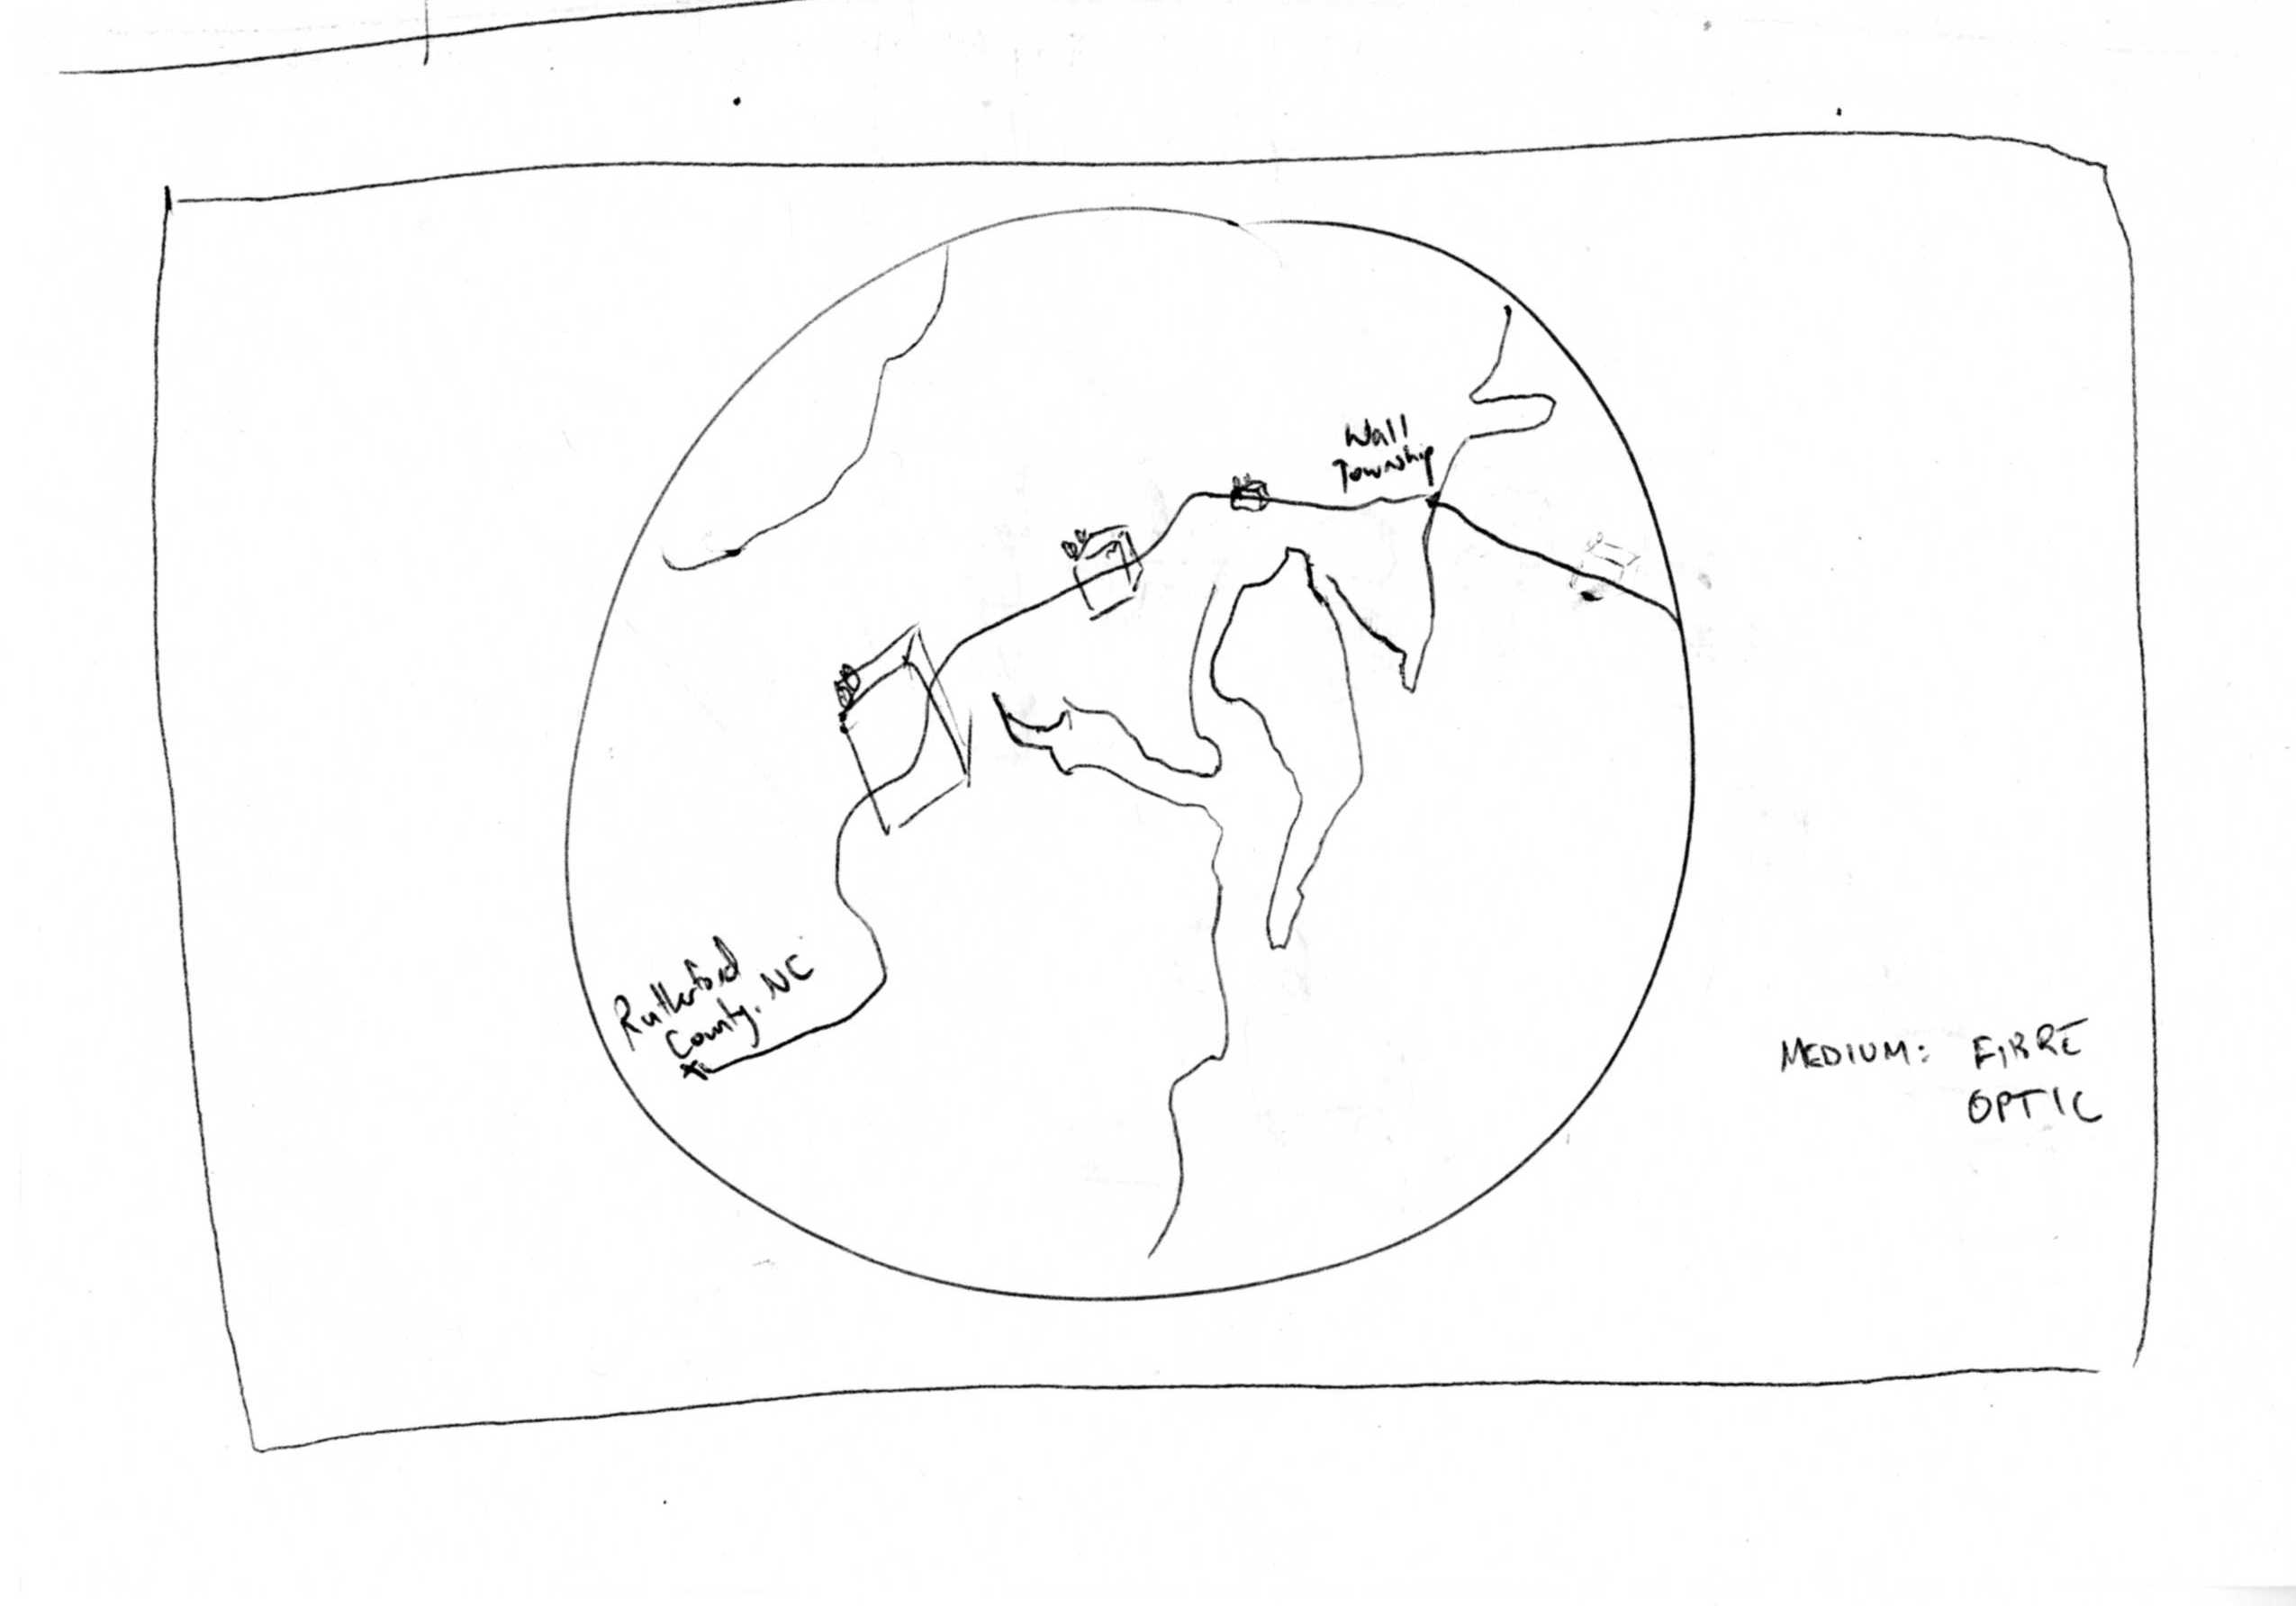 Wall
Township
Rutherford
County, NC
MEDIUM: FIBRE
OPTIC